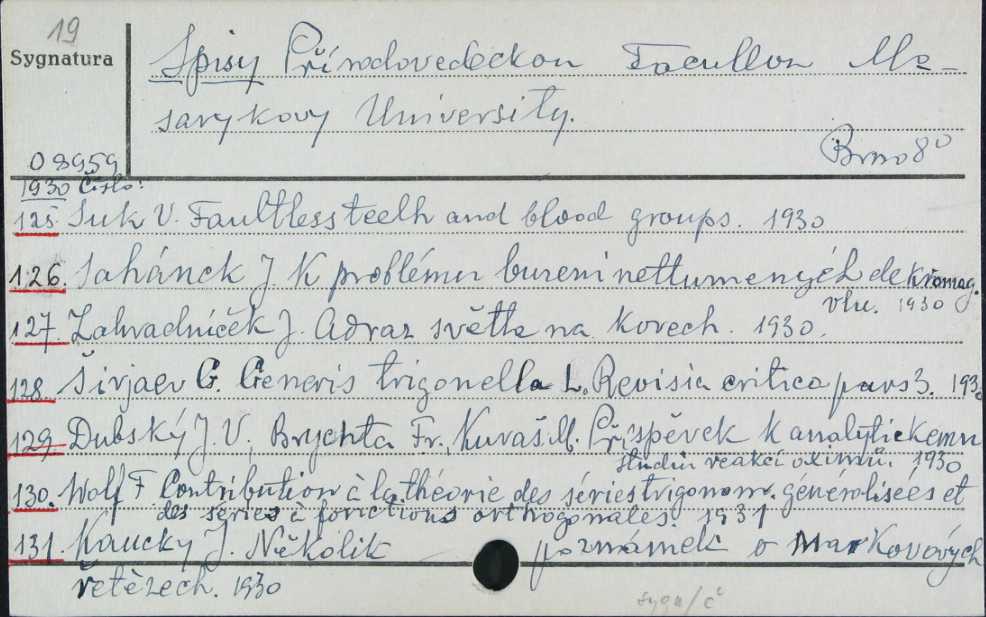 19
Sygnatura
Spisy Přírodovedeckou Facultou Ma-
sarykovy University.
Brno 8°
O 8959
1930 Čislo:
125 Suk V. Faultless teeth and blood groups. 1930
126. Sahánek J. K problému elektromag.
vln. 1930
127. Zahradníček J. Adraz světla na kovech. 1930.
128. Širjaev G. Generis trigonella L. Revisia critica pars 3. 1930
129. Dubský J. V., Brychta Fr., Kuraš M. Příspěvek k analytickemu
studiu reakcí oximů. 1930
130. Wolf F Contribution à la theorie des séries trigonom. généralisées et
des series à fonctions orthogonales. 1931
131. Kaucky J. Několik poznámek o Markovových
řetězech. 1930
sygn/č